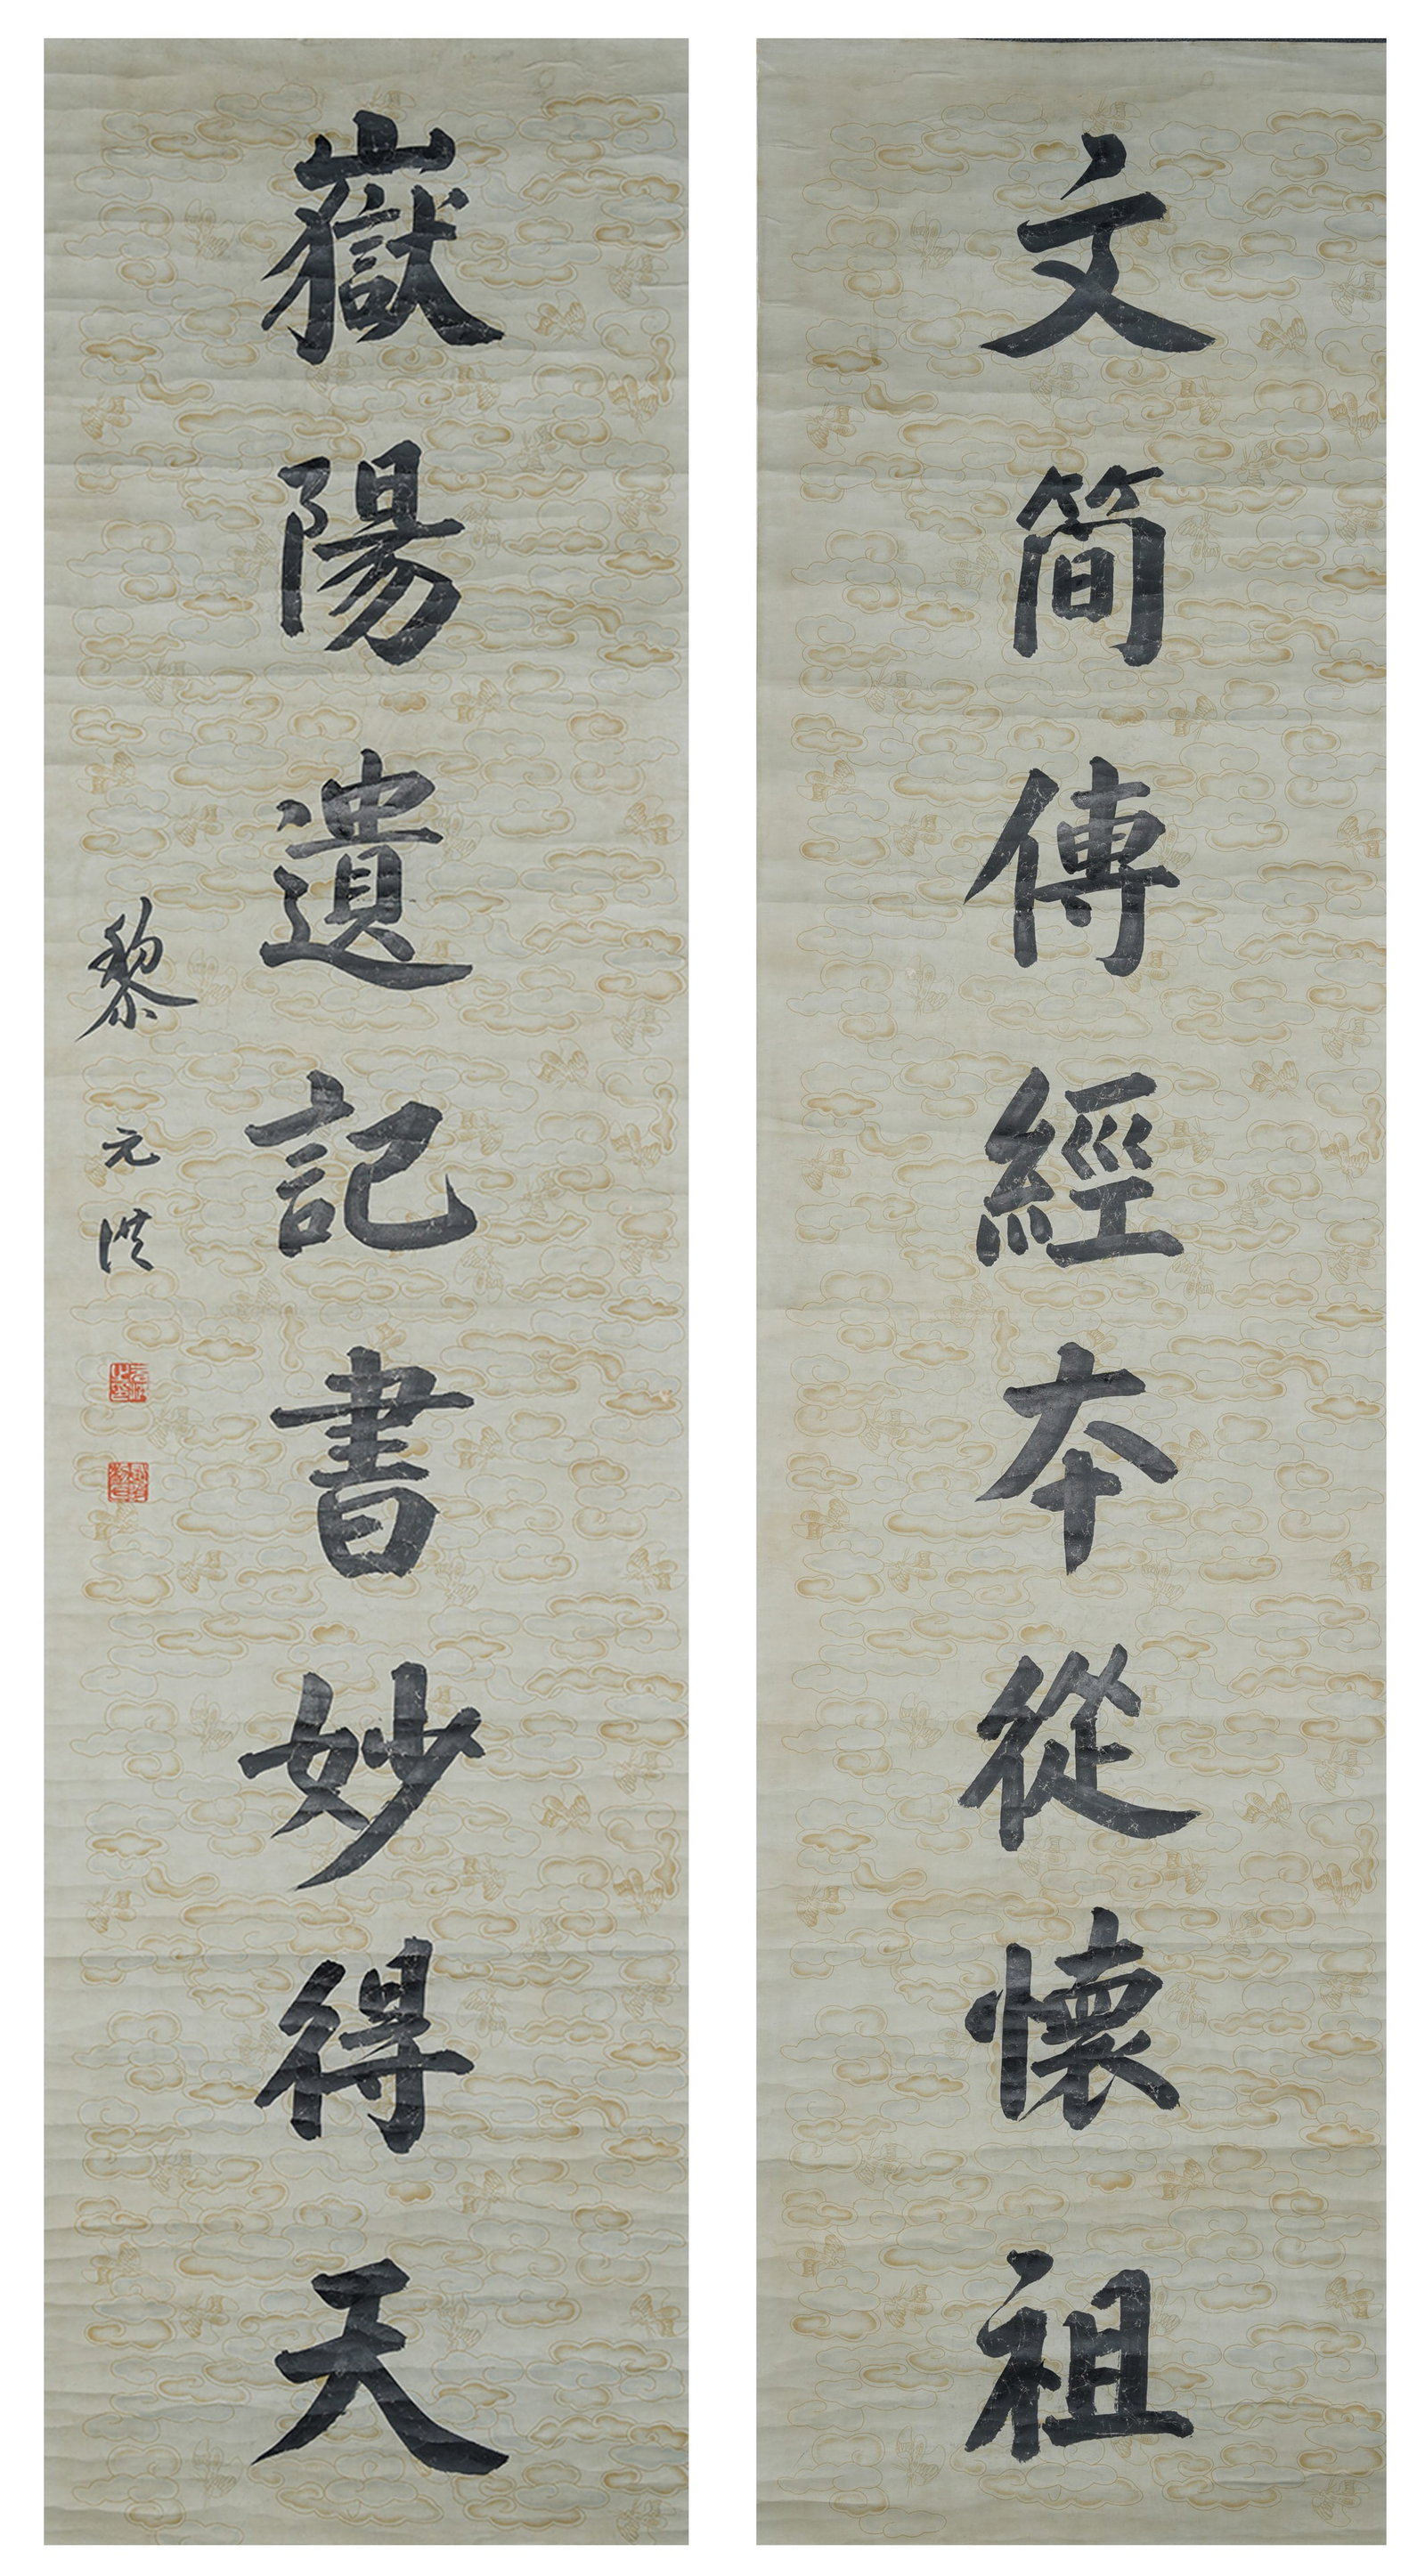 文簡傳經本從懷祖
嶽陽遺記書妙得天
黎元洪
元洪之印